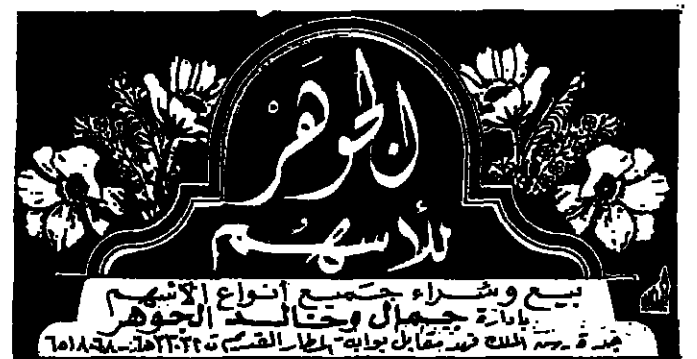 الجوهر
للأسهم
بيع وشراء جميع أنواع الأسهم
بإدارة جمال وخالد الجوهر
جدة ـ ش الملك فهد مقابل بوابة المطار القديم ت